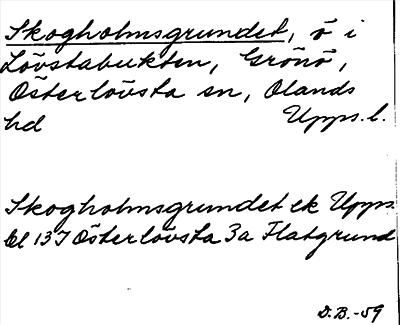 Skogholmsgrundet, ö i
Lövstabukten, Grönö,
Österlövsta sn, Olands
hd Upps. l.
Skogholmsgrundet ek Upps.
bl 137 Österlövsta 3a Flatgrund
D.B.-59